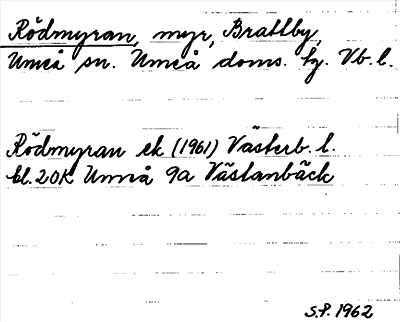 Rödmyran, myr, Brattby,
Umeå sn. Umeå doms. tg. Vb. l.
Rödmyran ek (1961) Västerb. l.
bl. 20K Umeå 9a Västanbäck
S.P. 1962